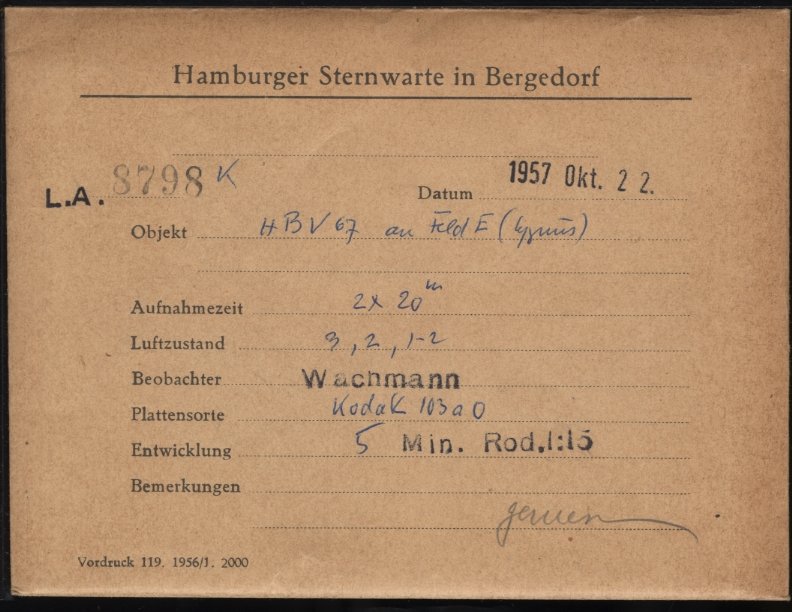 Hamburger Sternwarte in Bergedorf
L.A. 8798 K
Datum 1957 Okt. 22.
Objekt HBV 67 an Feld E (Cygnus)
Aufnahmezeit 2x 20m
Luftzustand 3, 2, 1-2
Beobachter Wachmann
Plattensorte Kodak 103a0
Entwicklung 5 Min. Rod. 1:15
Bemerkungen
Vordruck 119. 1956/1. 2000